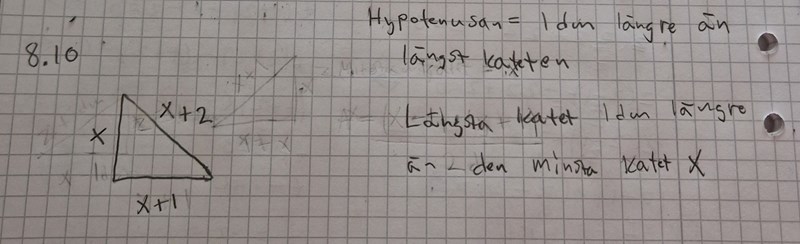 8.10
x
x+2
x+1
Hypotenusan = 1 dm längre än
längst kateten
Längsta katet 1 dm längre
än den minsta katet X